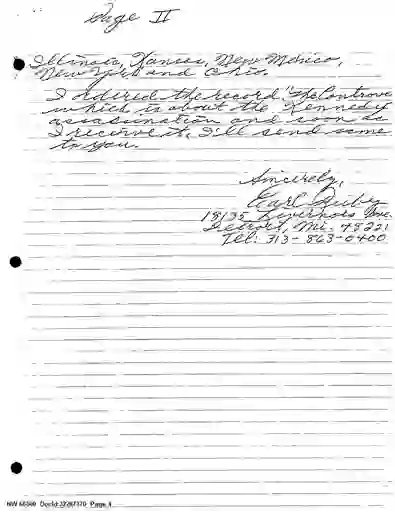 Page II
Illinois, Kansas, New Mexico,
New York and Ohio.
I ordered the record "
which is about the Kennedy
assassination and soon as
I receive it, I'll send some
to you.
Sincerely,
Earl Ruby
18135 Livernois Ave.
Detroit, Mi. 48221
Tel: 313-863-0400
NW 66000 DocId:32267370 Page 4